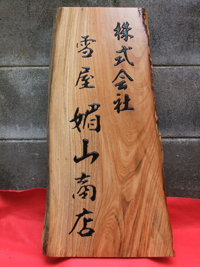 株式会社
雪屋媚山商店